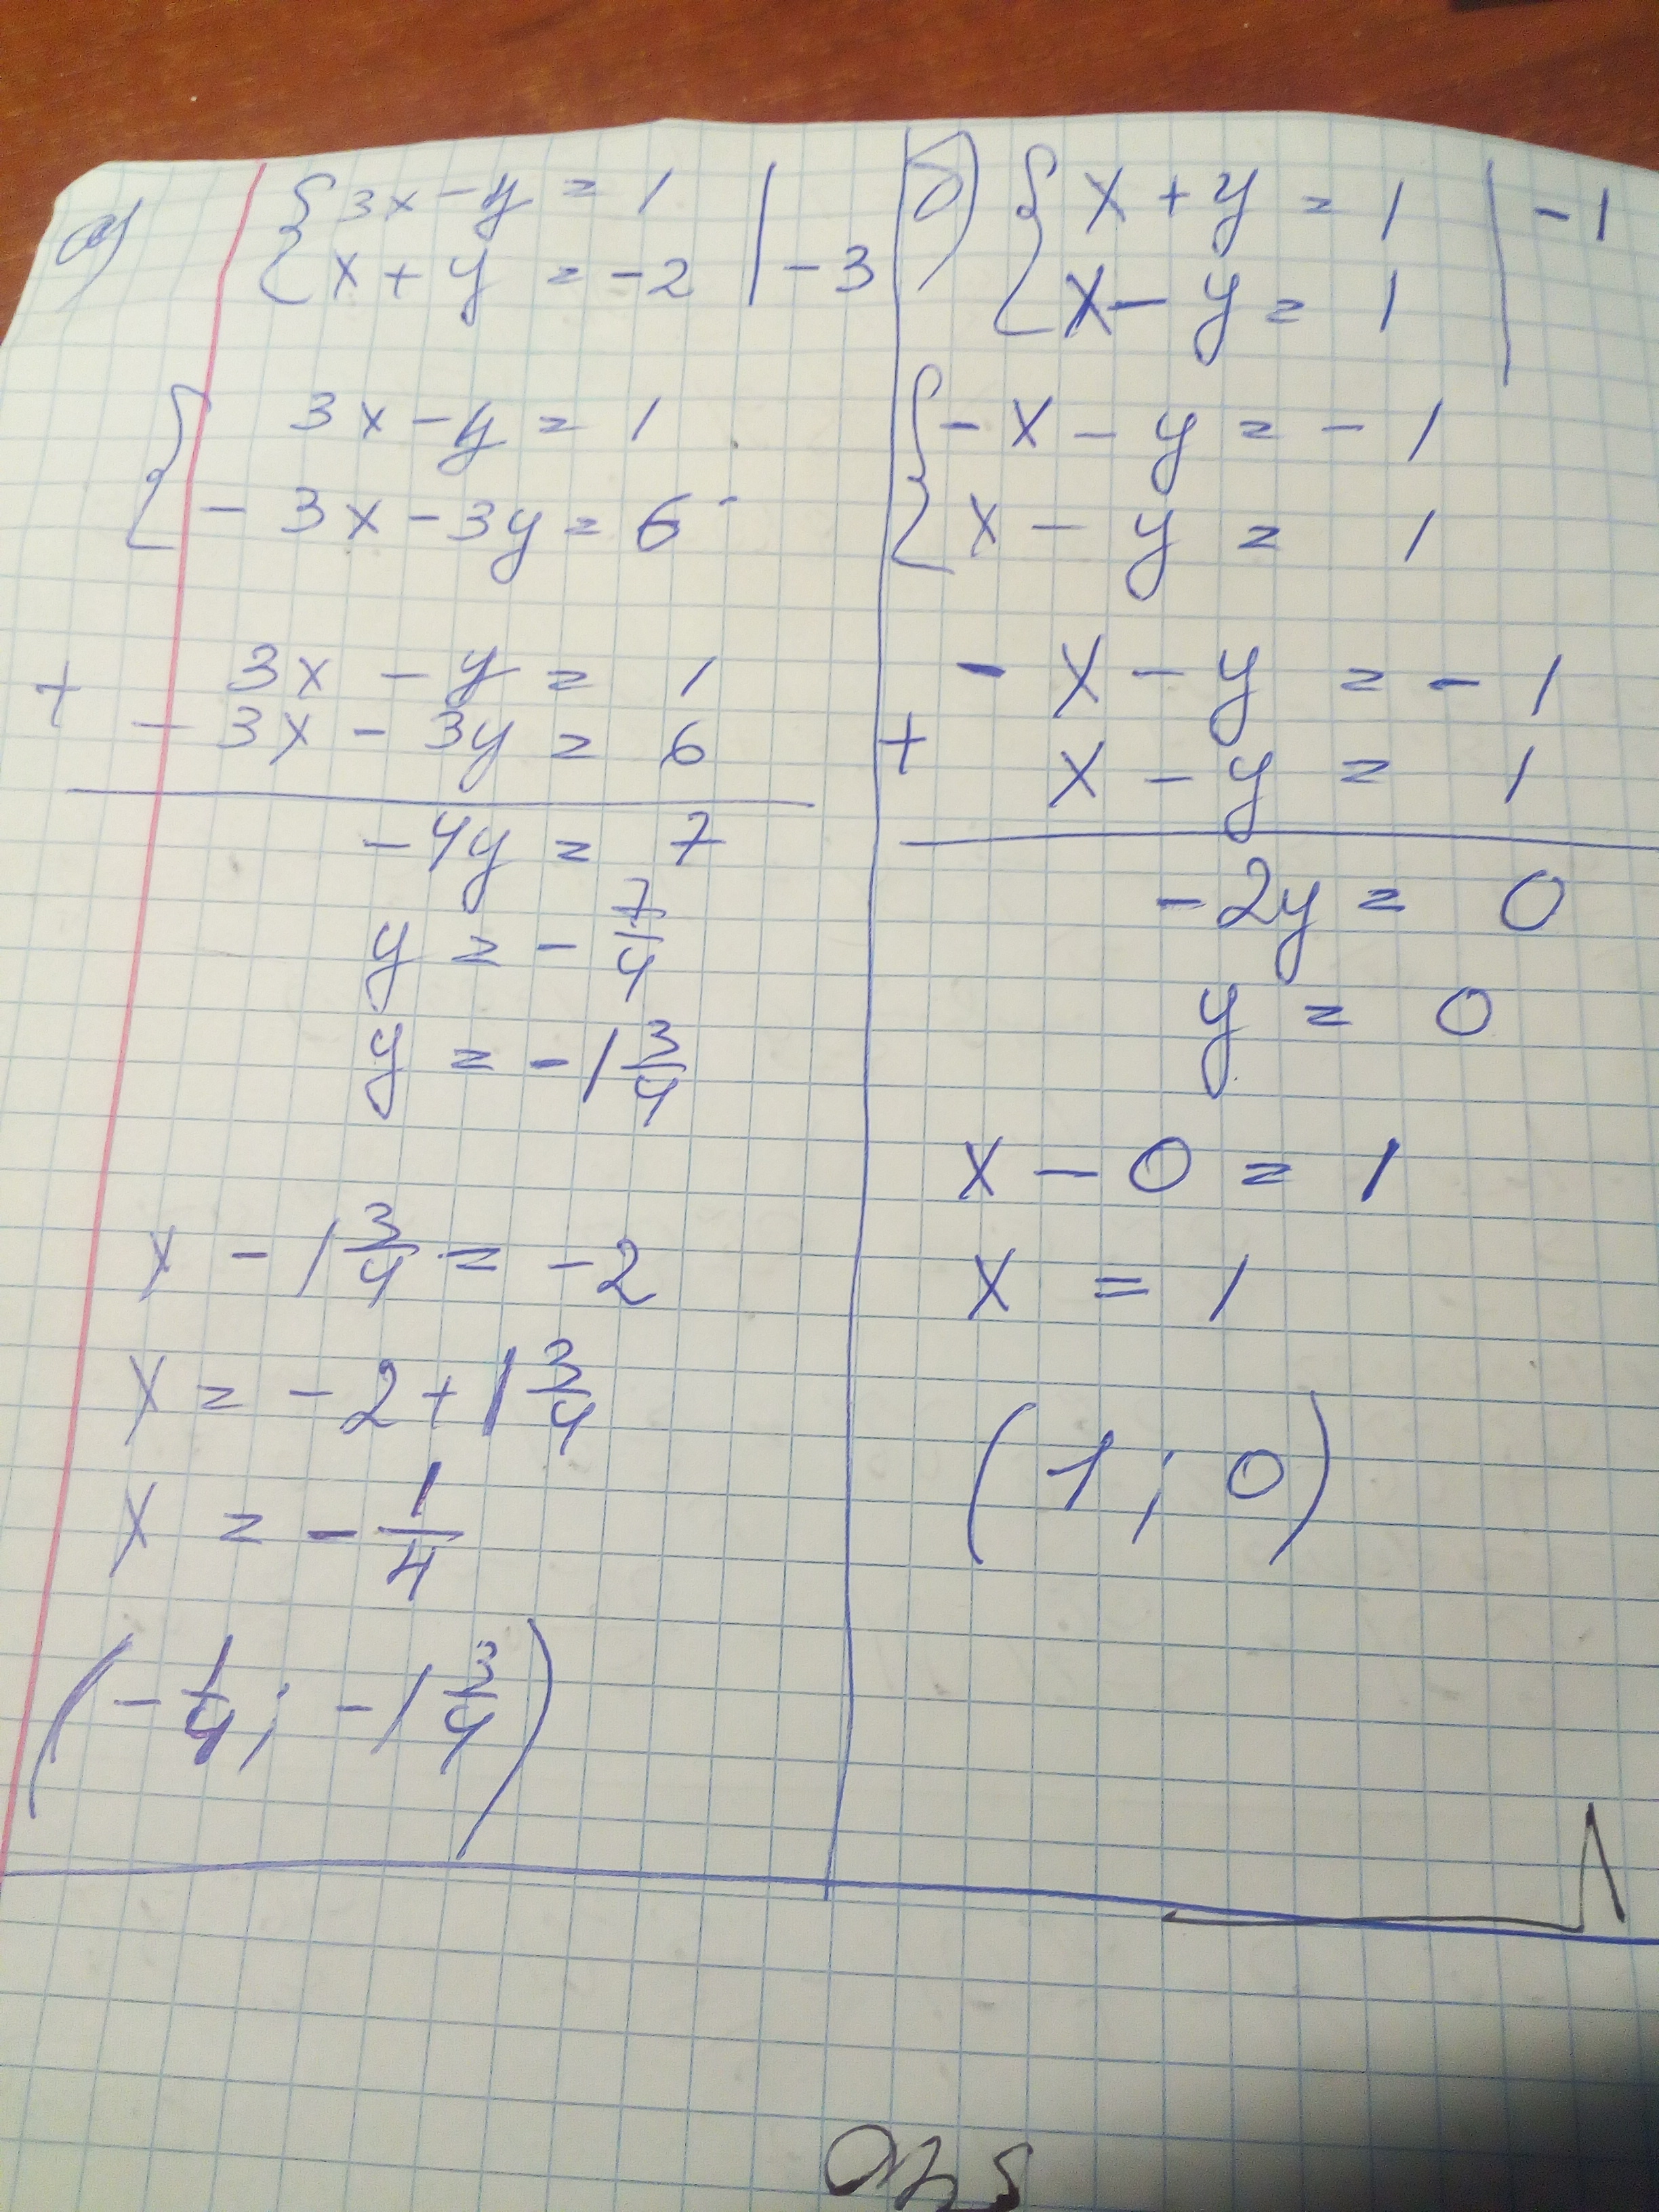 а)
{3x - y = 1
{x + y = -2 | -3
{3x - y = 1
{-3x - 3y = 6
+ 3x - y = 1
- 3x - 3y = 6
-4y = 7
y = -7/4
y = -1 3/4
x - 1 3/4 = -2
x = -2 + 1 3/4
x = -1/4
(-1/4; -1 3/4)
б)
{x + y = 1 | -1
{x - y = 1
{-x - y = -1
{x - y = 1
+ -x - y = -1
x - y = 1
-2y = 0
y = 0
x - 0 = 1
x = 1
(1; 0)